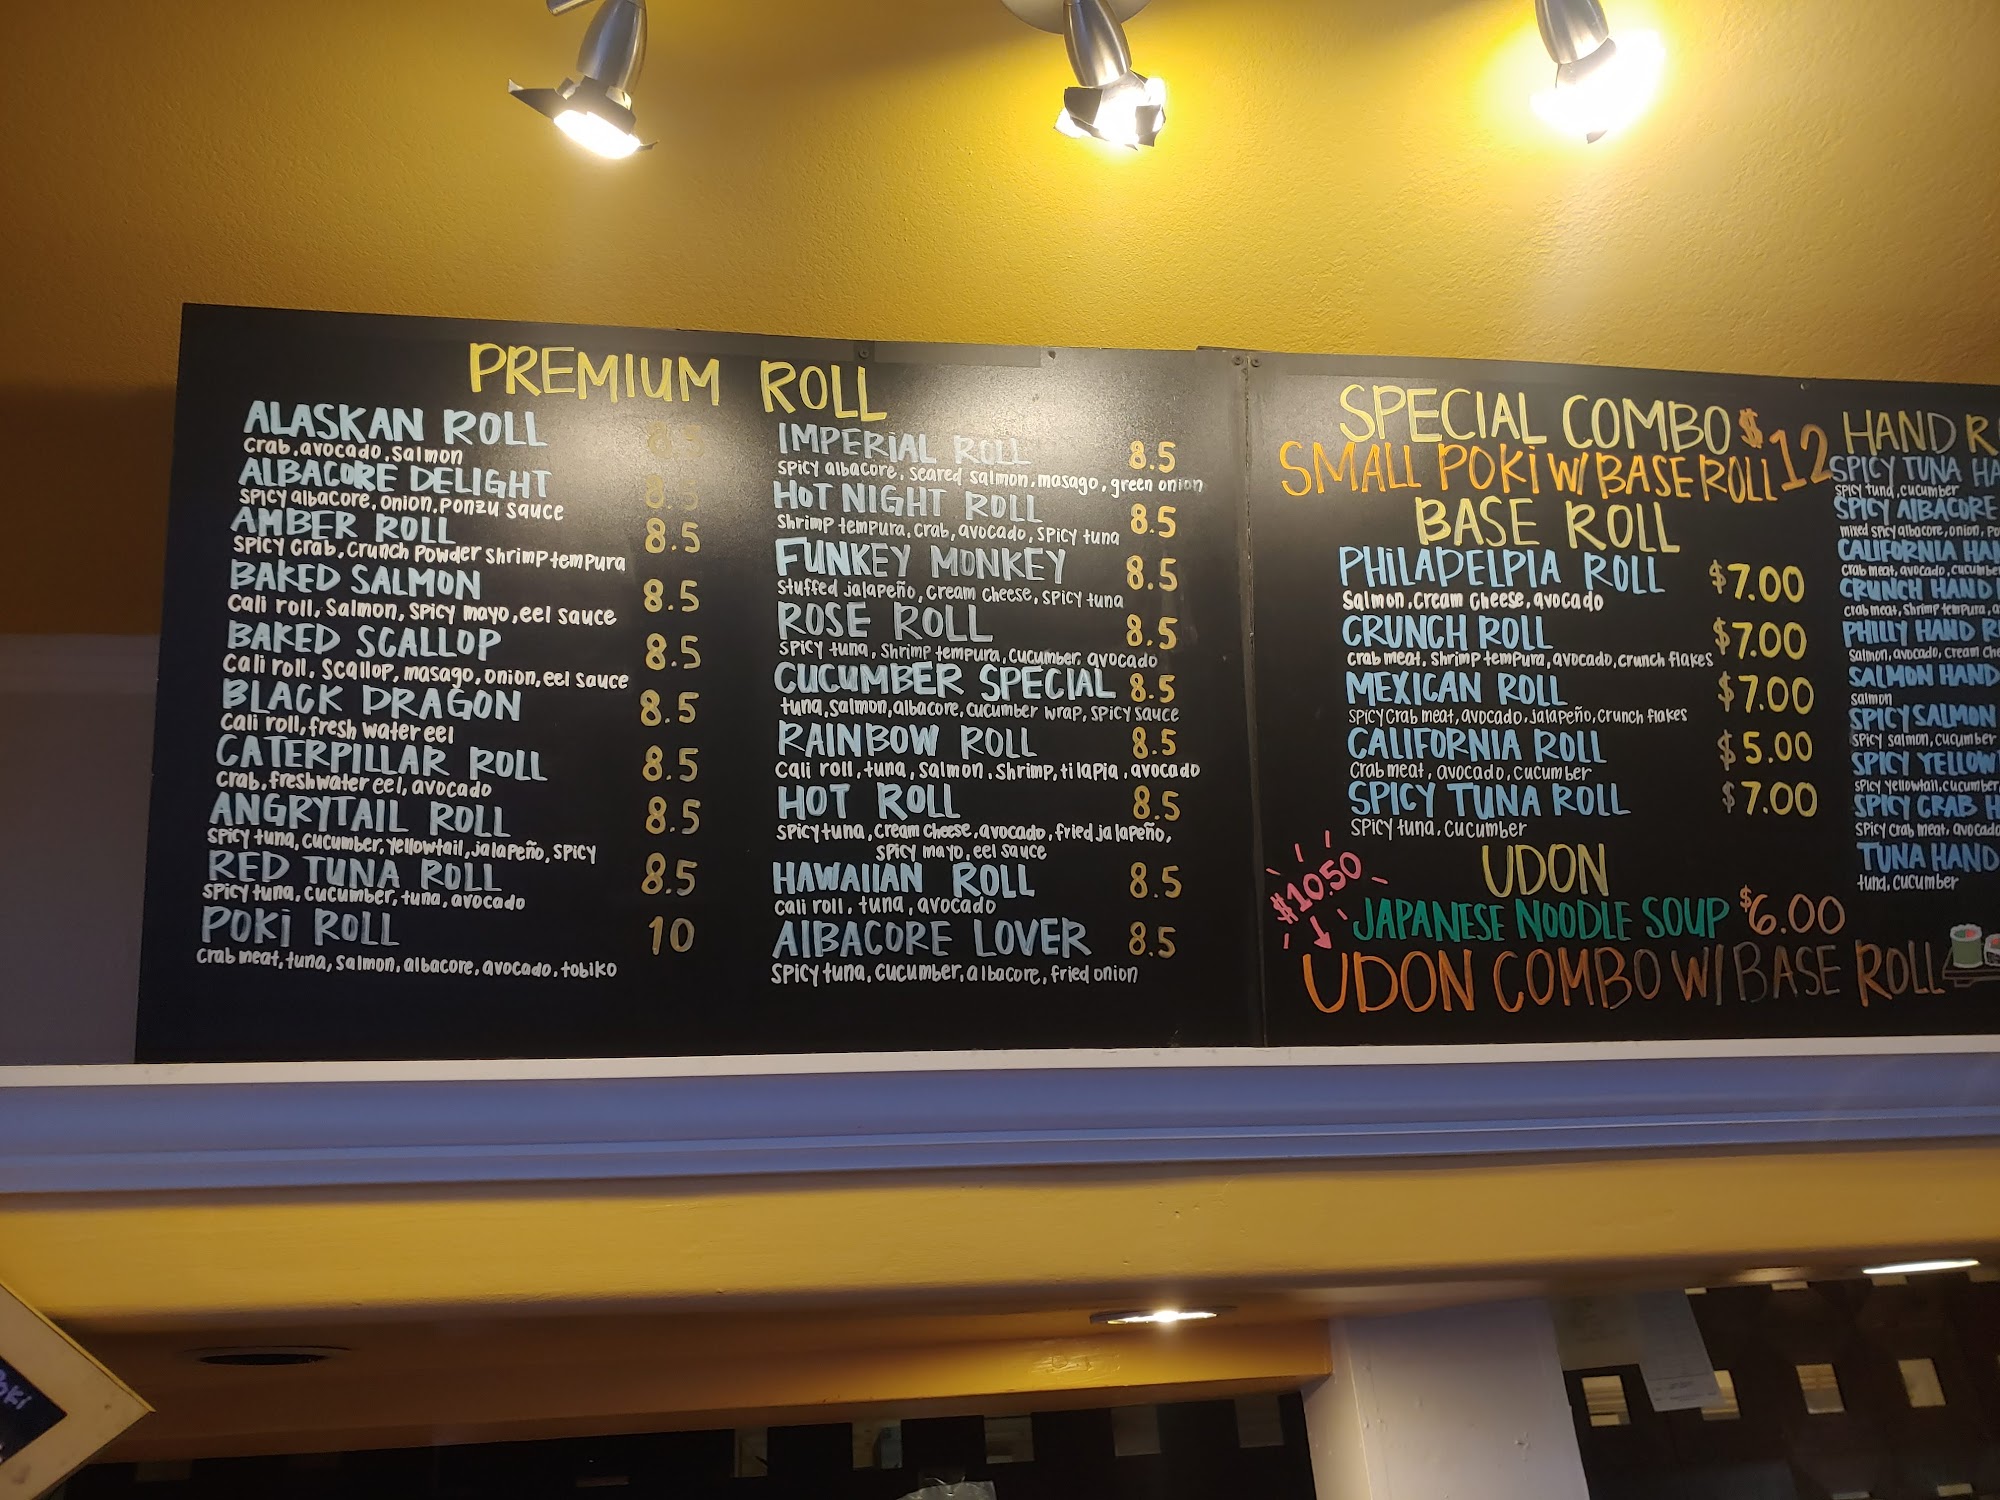 PREMIUM ROLL
ALASKAN ROLL 8.5
crab, avocado, salmon
ALBACORE DELIGHT 8.5
spicy albacore, onion, ponzu sauce
AMBER ROLL 8.5
spicy crab, crunch powder shrimp tempura
BAKED SALMON 8.5
cali roll, salmon, spicy mayo, eel sauce
BAKED SCALLOP 8.5
cali roll, scallop, masago, onion, eel sauce
BLACK DRAGON 8.5
cali roll, fresh water eel
CATERPILLAR ROLL 8.5
crab, freshwater eel, avocado
ANGRYTAIL ROLL 8.5
spicy tuna, cucumber, yellowtail, jalapeño, spicy
RED TUNA ROLL 8.5
spicy tuna, cucumber, tuna, avocado
POKI ROLL 10
crab meat, tuna, salmon, albacore, avocado, tobiko
IMPERIAL ROLL 8.5
spicy albacore, seared salmon, masago, green onion
HOT NIGHT ROLL 8.5
shrimp tempura, crab, avocado, spicy tuna
FUNKEY MONKEY 8.5
stuffed jalapeño, cream cheese, spicy tuna
ROSE ROLL 8.5
spicy tuna, shrimp tempura, cucumber, avocado
CUCUMBER SPECIAL 8.5
tuna, salmon, albacore, cucumber wrap, spicy sauce
RAINBOW ROLL 8.5
cali roll, tuna, salmon, shrimp, tilapia, avocado
HOT ROLL 8.5
spicy tuna, cream cheese, avocado, fried jalapeño,
spicy mayo, eel sauce
HAWAIIAN ROLL 8.5
cali roll, tuna, avocado
AlBACORE LOVER 8.5
spicy tuna, cucumber, albacore, fried onion
SPECIAL COMBO $12
SMALL POKI W/ BASE ROLL
BASE ROLL
PHILADELPIA ROLL $7.00
salmon, cream cheese, avocado
CRUNCH ROLL $7.00
crab meat, shrimp tempura, avocado, crunch flakes
MEXICAN ROLL $7.00
spicy crab meat, avocado, jalapeño, crunch flakes
CALIFORNIA ROLL $5.00
crab meat, avocado, cucumber
SPICY TUNA ROLL $7.00
spicy tuna, cucumber
UDON
JAPANESE NOODLE SOUP $6.00
$10.50
UDON COMBO W/ BASE ROLL
HAND R
SPICY TUNA HA
spicy tuna, cucumber
SPICY AlBACORE
mixed spicy albacore, onion, po
CALIFORNIA HAN
crab meat, avocado, cucumber
CRUNCH HAND
crab meat, shrimp tempura, a
PHILLY HAND R
salmon, avocado, cream che
SALMON HAND
salmon
SPICY SALMON
spicy salmon, cucumber
SPICY YELLOW
spicy yellowtail, cucumber
SPICY CRAB H
spicy crab meat, avocado
TUNA HAND
tuna, cucumber